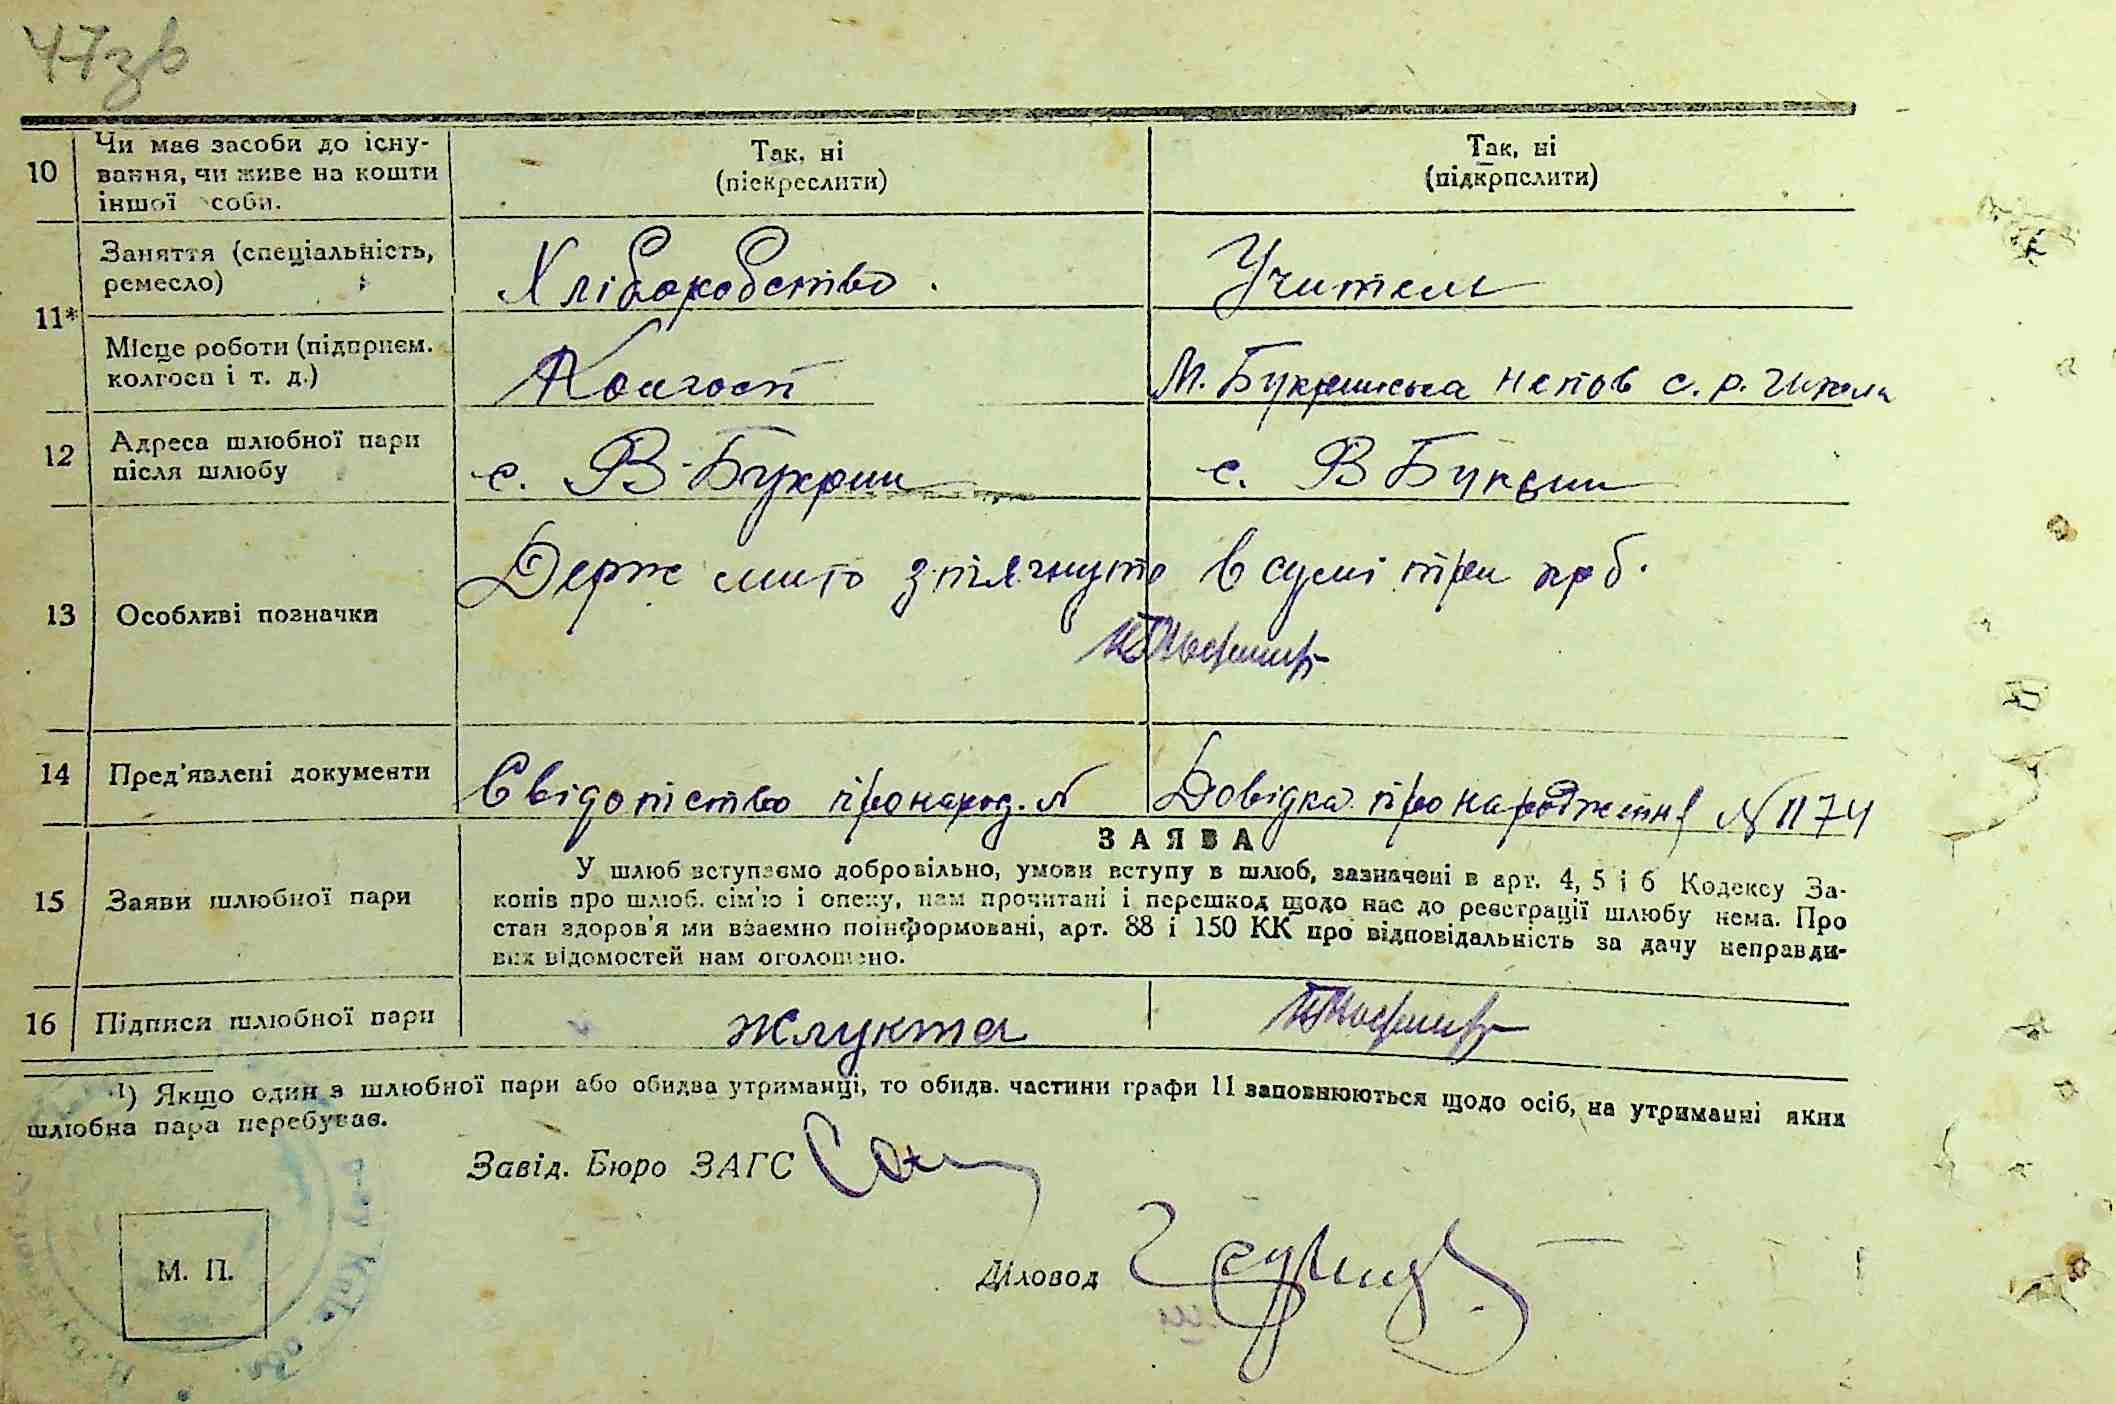 47зв
10 Чи має засоби до існу-
вання, чи живе на кошти
іншої особи.
Так, ні
(підкреслити)
Так, ні
(підкрпслити)
11* Заняття (спеціальність,
ремесло)
Хліборобство.
Учитель
Місце роботи (підприєм.
колгосп і т. д.)
Колгосп
М. Букринська непов с. р. школа
12 Адреса шлюбної пари
після шлюбу
с. В-Букрин
с. В Букрин
13 Особливі позначки
Держ мито зтягнуто в сумі три крб.
14 Пред'явлені документи
Свідоцтво про народ. №
Довідка про народження № 1174
15 Заяви шлюбної пари
ЗАЯВА
У шлюб вступаємо добровільно, умови вступу в шлюб, зазначені в арт. 4, 5 і 6 Кодексу За-
конів про шлюб. сім'ю і опеку, нам прочитані і перешкод щодо нас до реєстрації шлюбу нема. Про
стан здоров'я ми взаємно поінформовані, арт. 88 і 150 КК про відповідальність за дачу неправди-
вих відомостей нам оголошено.
16 Підписи шлюбної пари
Жлукта
¹) Якщо один з шлюбної пари або обидва утриманці, то обидв. частини графи 11 заповнюються щодо осіб, на утриманні яких
шлюбна пара перебуває.
Завід. Бюро ЗАГС
Діловод
М. П.